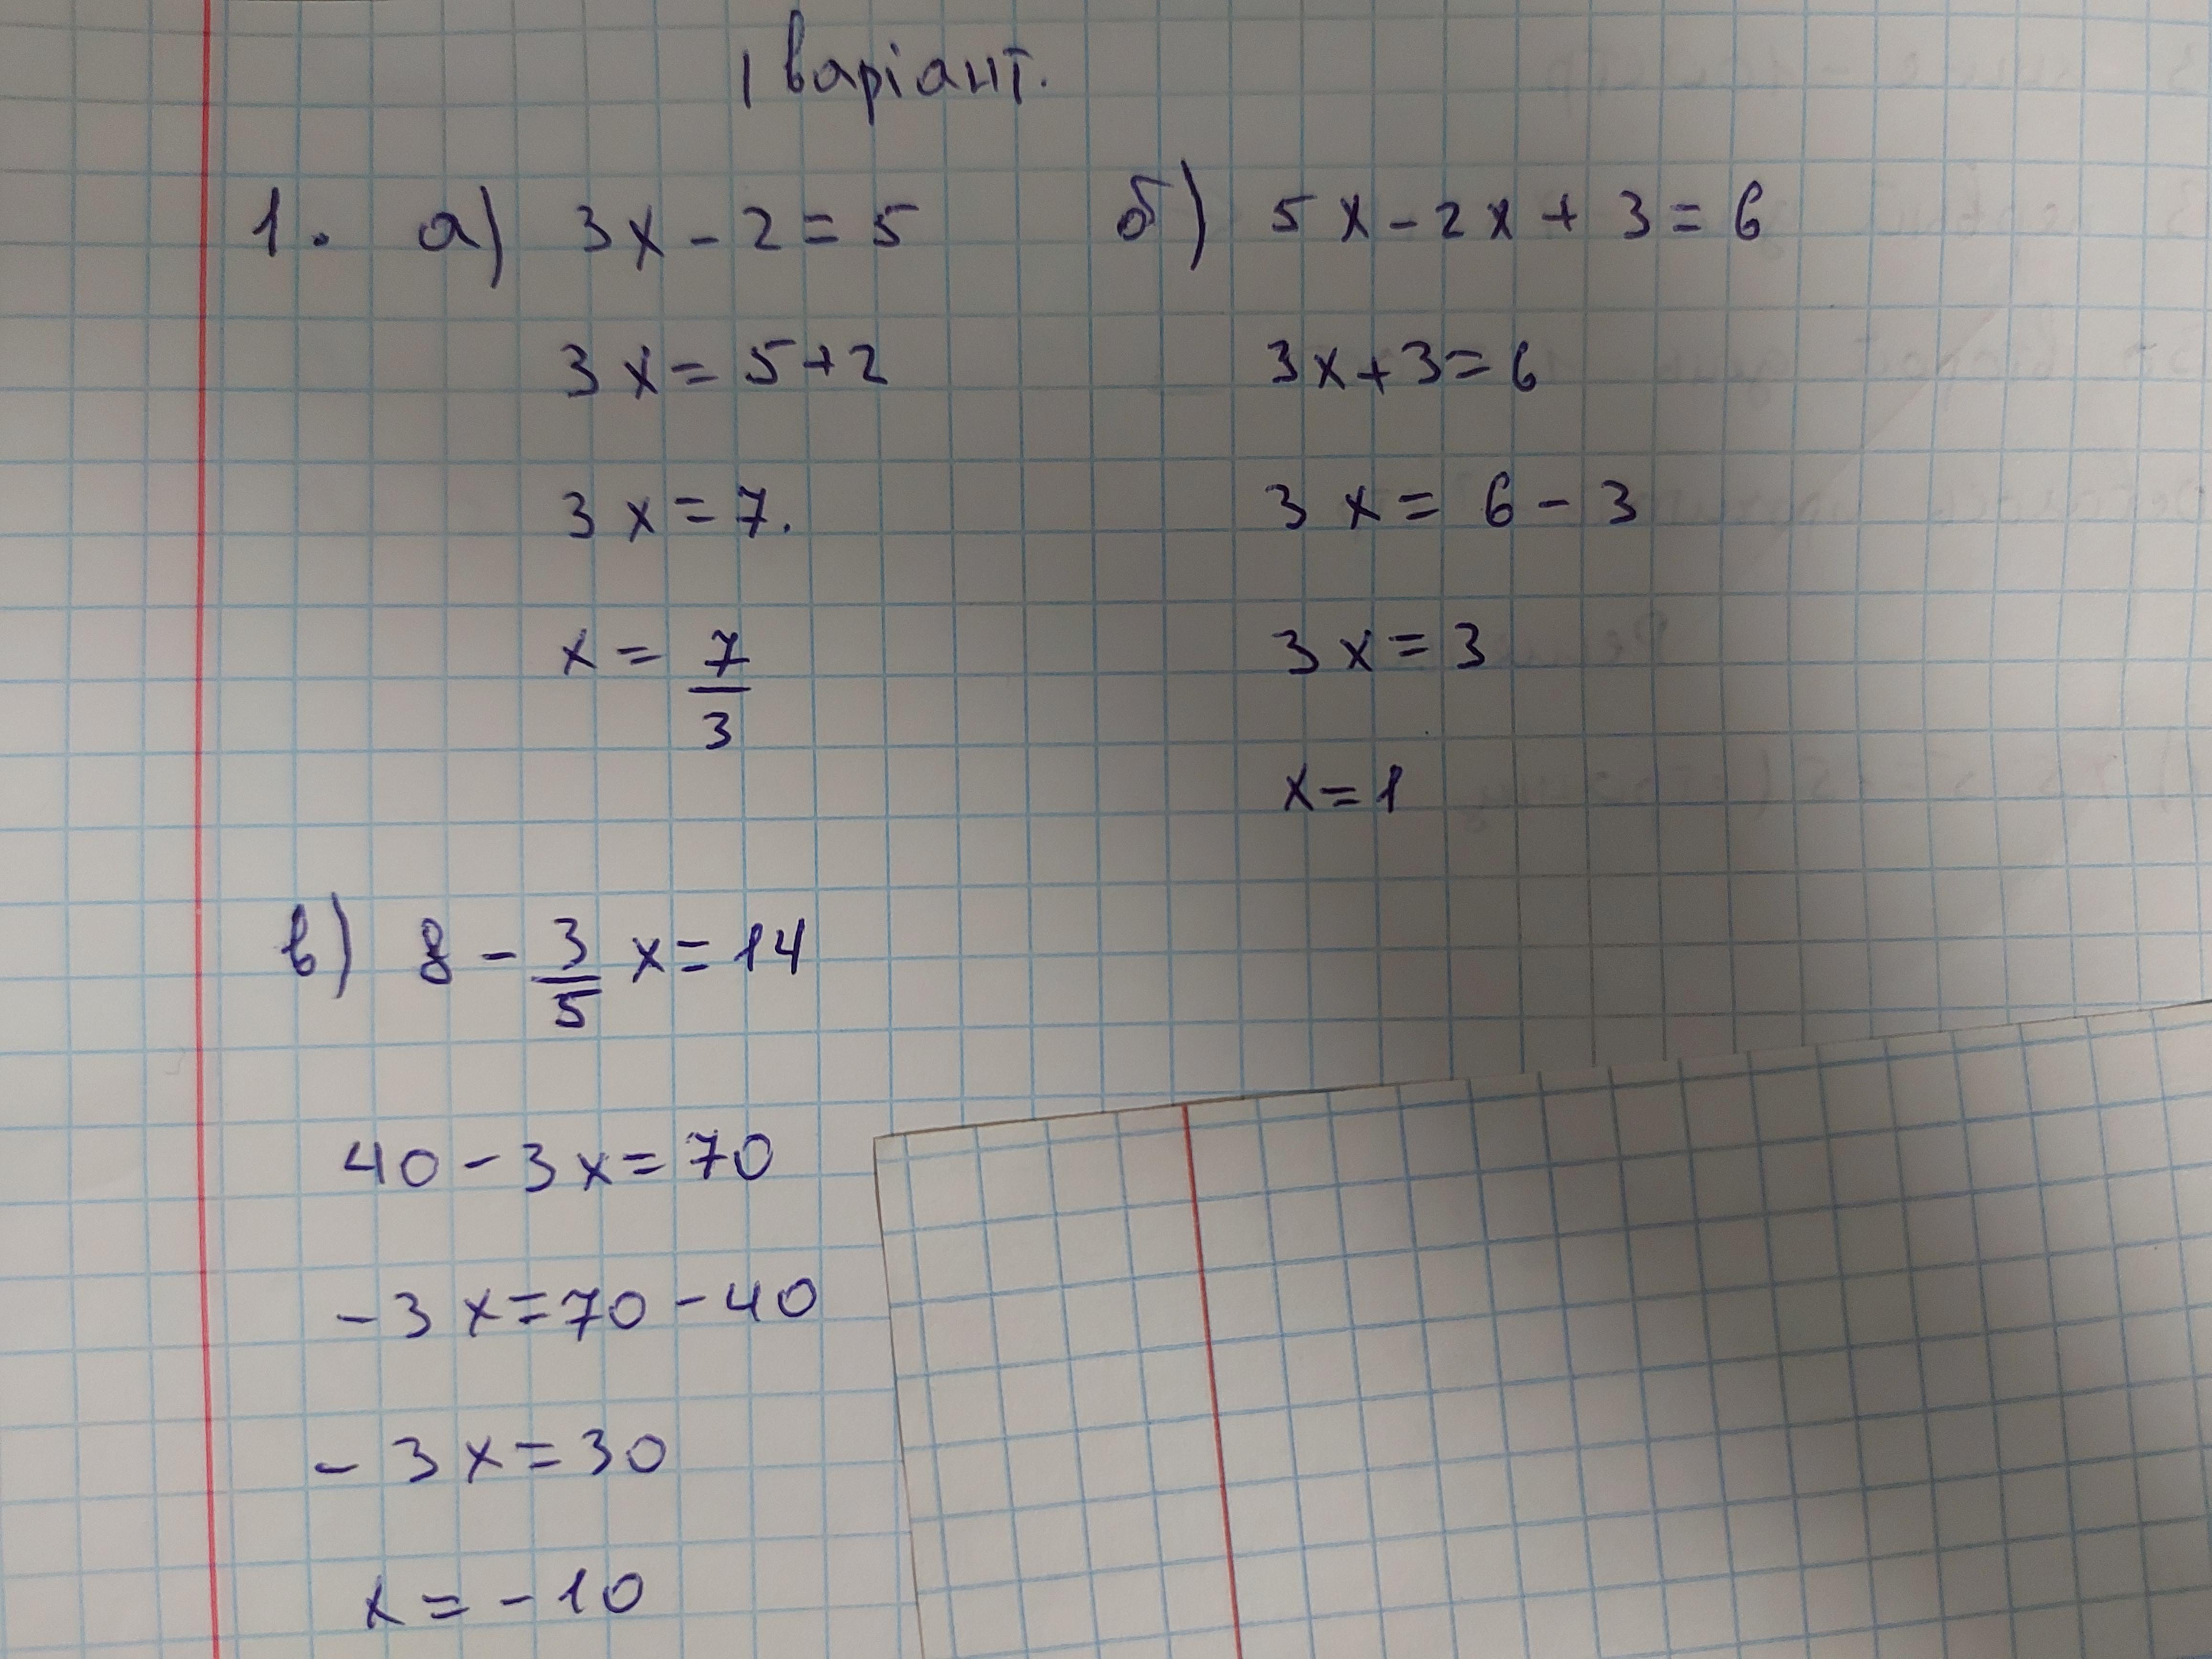 1 варіант.
1. а) 3x - 2 = 5
3x = 5 + 2
3x = 7.
x = 7/3
б) 5x - 2x + 3 = 6
3x + 3 = 6
3x = 6 - 3
3x = 3
x = 1
в) 8 - 3/5 x = 14
40 - 3x = 70
- 3x = 70 - 40
- 3x = 30
x = - 10